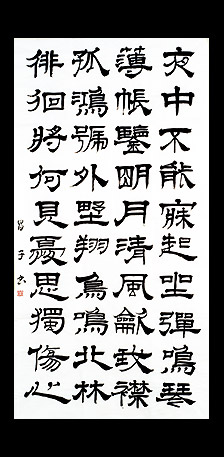 夜中不能寐起坐彈鳴琴
薄帳鑒朙月清風龡我襟
孤鴻號外野翔鳥鳴北林
徘徊將何見憂思獨傷心